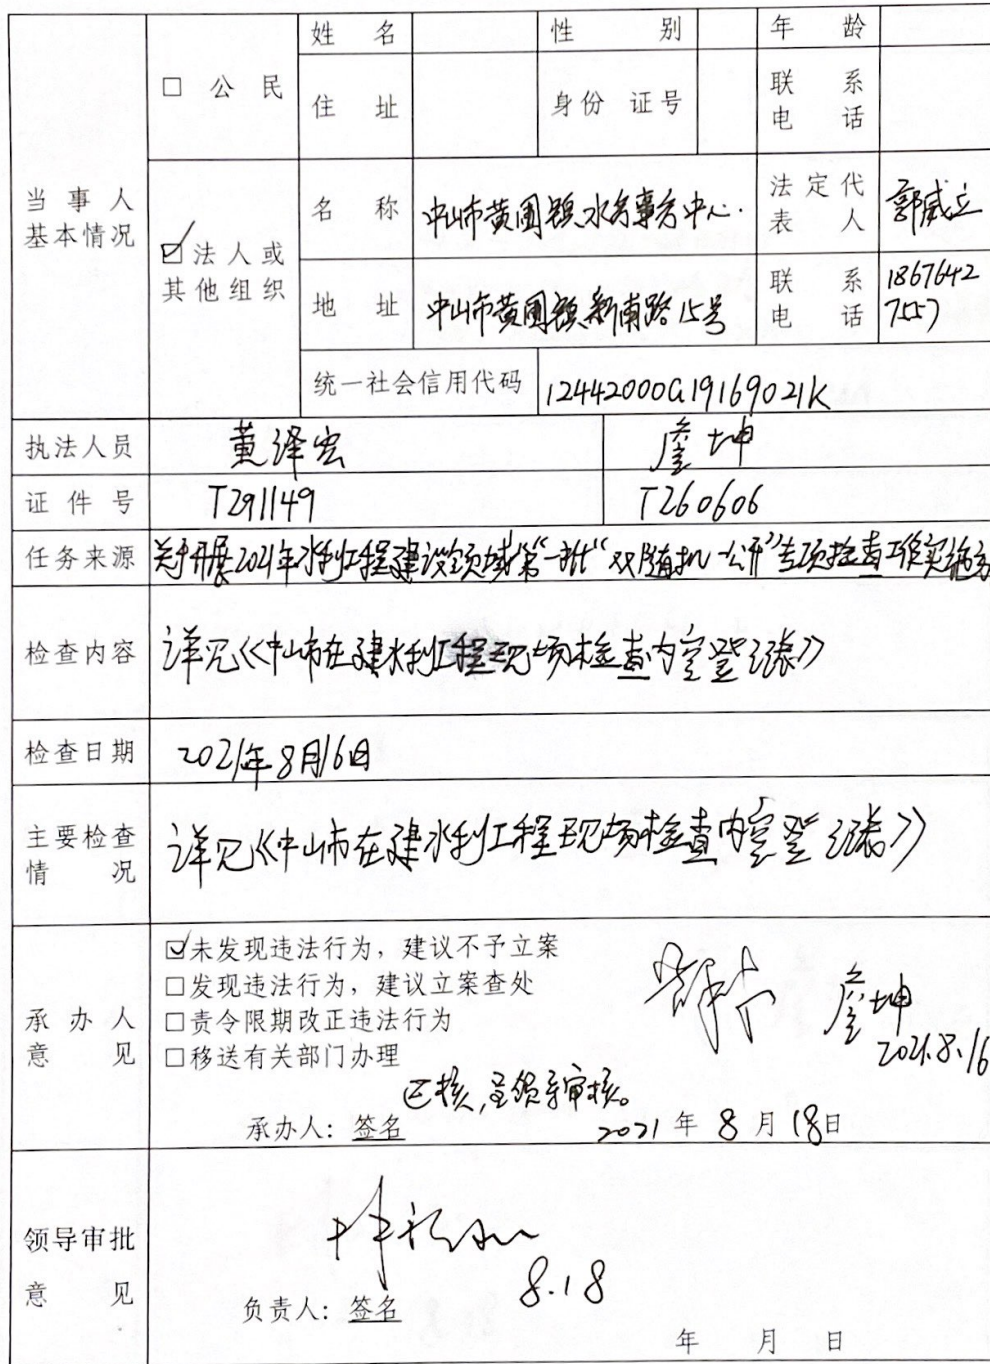 姓 名 性 别 年 龄
□ 公 民
住 址 身份 证号 联 系 电 话
当 事 人 基本情况
名 称 中山市黄圃镇水务事务中心. 法定代表人 郭威立
☑法人或其他组织
地 址 中山市黄圃镇新南路15号 联 系 电 话 18676427557
统一社会信用代码 12442000G19169021K
执法人员 黄泽宏 詹坤
证 件 号 T291149 T260606
任务来源 关于开展2021年水利工程建设领域第一批“双随机一公开”专项检查工作实施方
检查内容 详见《中山市在建水利工程现场检查内容登记表》
检查日期 2021年8月16日
主要检查情 况 详见《中山市在建水利工程现场检查内容登记表》
承 办 人 意 见
☑未发现违法行为，建议不予立案
□发现违法行为，建议立案查处
□责令限期改正违法行为
□移送有关部门办理
詹坤
2021.8.16
已核，呈领导审核。
承办人：签名 2021 年 8 月 18日
领导审批意 见
8.18
负责人：签名
年 月 日